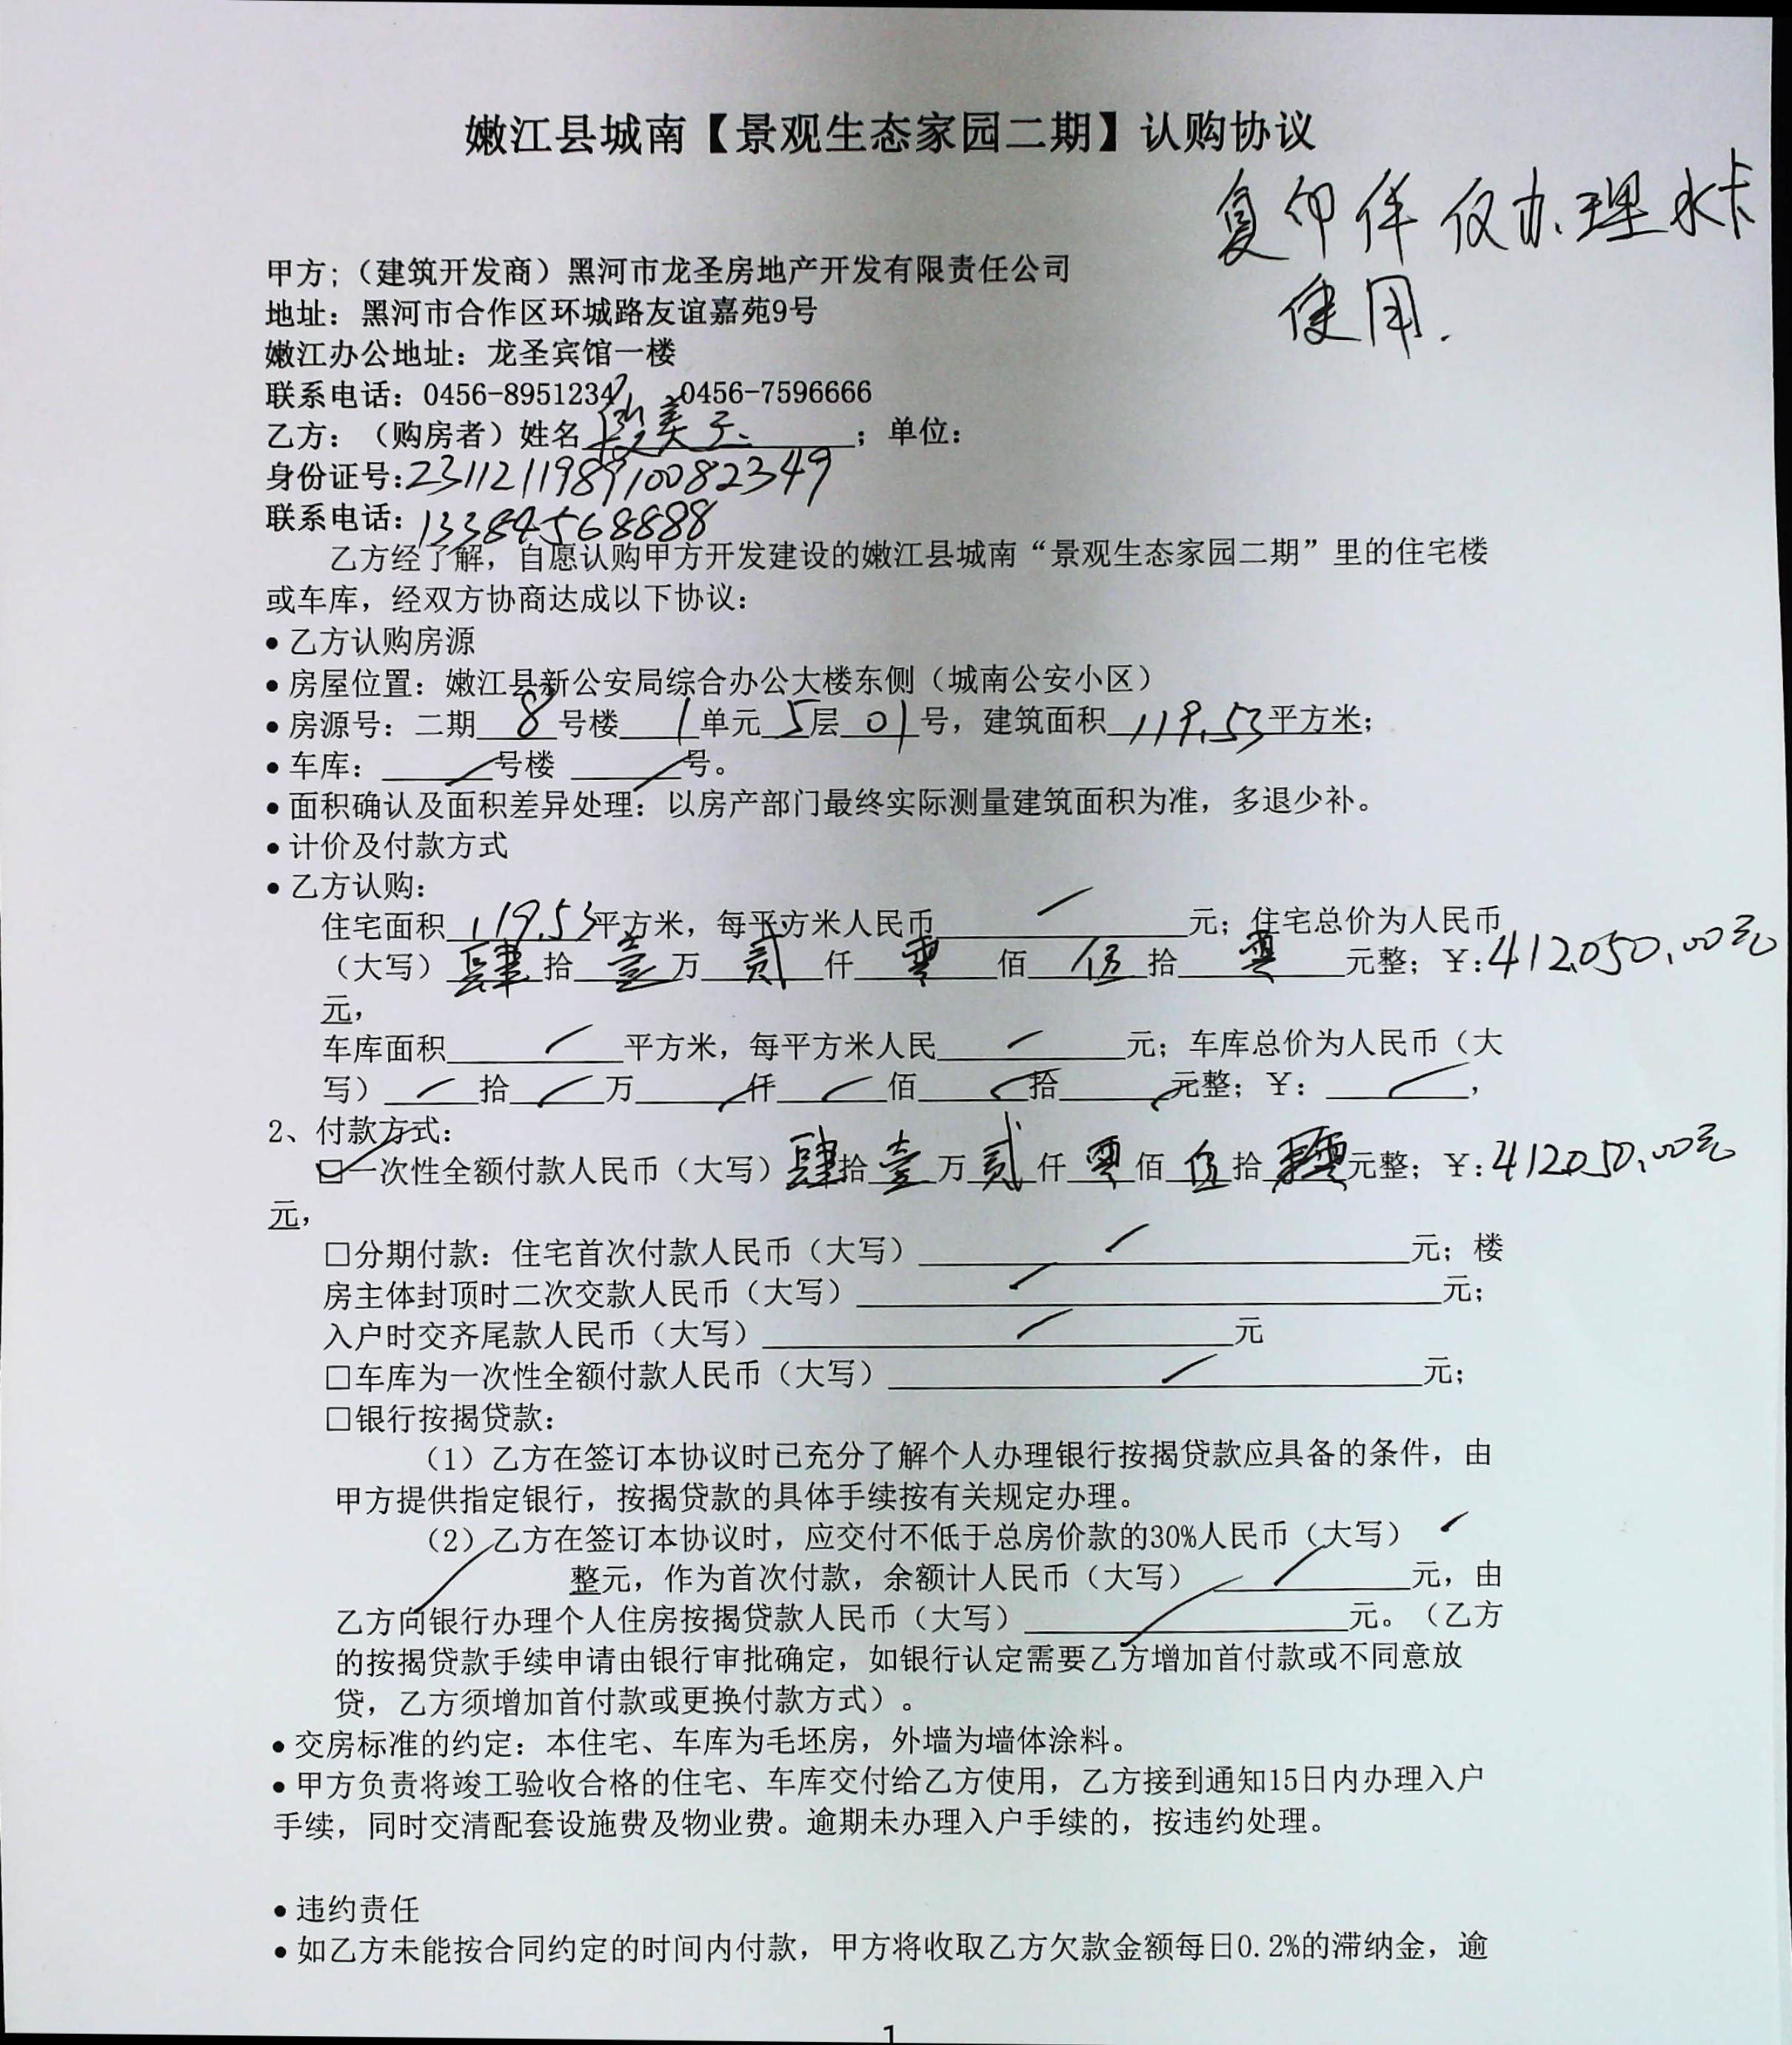 嫩江县城南【景观生态家园二期】认购协议
复印件仅办理水卡
使用.
甲方;（建筑开发商）黑河市龙圣房地产开发有限责任公司
地址：黑河市合作区环城路友谊嘉苑9号
嫩江办公地址：龙圣宾馆一楼
联系电话：0456-8951234  0456-7596666
乙方：（购房者）姓名 段美子 ；单位：
身份证号:231121198910082349
联系电话：13384568888
乙方经了解，自愿认购甲方开发建设的嫩江县城南“景观生态家园二期”里的住宅楼
或车库，经双方协商达成以下协议：
• 乙方认购房源
• 房屋位置：嫩江县新公安局综合办公大楼东侧（城南公安小区）
• 房源号：二期 8 号楼 1 单元 5 层 01 号，建筑面积 119.53 平方米；
• 车库： / 号楼 / 号。
• 面积确认及面积差异处理：以房产部门最终实际测量建筑面积为准，多退少补。
• 计价及付款方式
• 乙方认购：
住宅面积 119.53 平方米，每平方米人民币 / 元；住宅总价为人民币
（大写） 肆 拾 壹 万 贰 仟 零 佰 伍 拾 零 元整；￥:412050.00元
元，
车库面积 / 平方米，每平方米人民 / 元；车库总价为人民币（大
写） / 拾 / 万 / 仟 / 佰 / 拾 / 元整；￥： / ，
2、付款方式：
☑一次性全额付款人民币（大写） 肆 拾 壹 万 贰 仟 零 佰 伍 拾 零 元整；￥:412050.00元
元，
□分期付款：住宅首次付款人民币（大写） / 元；楼
房主体封顶时二次交款人民币（大写） / 元；
入户时交齐尾款人民币（大写） / 元
□车库为一次性全额付款人民币（大写） / 元；
□银行按揭贷款：
（1）乙方在签订本协议时已充分了解个人办理银行按揭贷款应具备的条件，由
甲方提供指定银行，按揭贷款的具体手续按有关规定办理。
（2）乙方在签订本协议时，应交付不低于总房价款的30%人民币（大写） /
整元，作为首次付款，余额计人民币（大写） / 元，由
乙方向银行办理个人住房按揭贷款人民币（大写） / 元。（乙方
的按揭贷款手续申请由银行审批确定，如银行认定需要乙方增加首付款或不同意放
贷，乙方须增加首付款或更换付款方式）。
• 交房标准的约定：本住宅、车库为毛坯房，外墙为墙体涂料。
• 甲方负责将竣工验收合格的住宅、车库交付给乙方使用，乙方接到通知15日内办理入户
手续，同时交清配套设施费及物业费。逾期未办理入户手续的，按违约处理。
• 违约责任
• 如乙方未能按合同约定的时间内付款，甲方将收取乙方欠款金额每日0.2%的滞纳金，逾
1